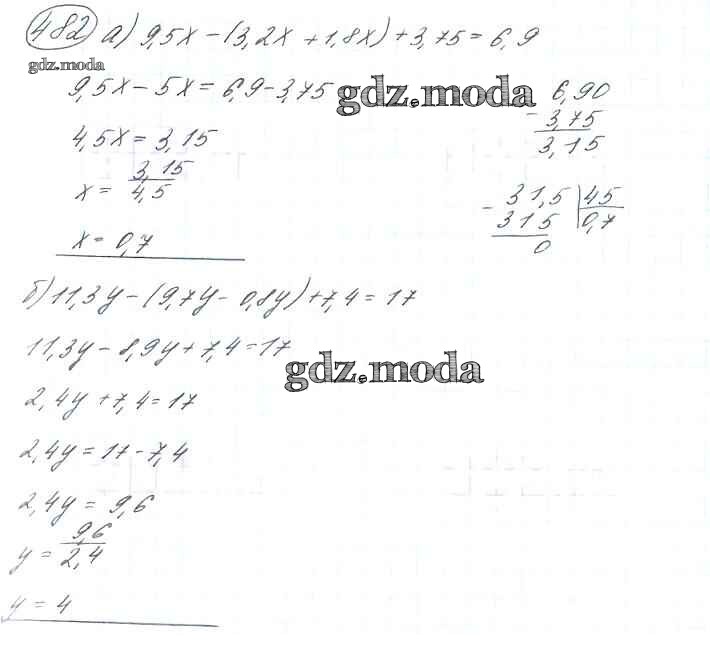 482 а) 9,5x - (3,2x + 1,8x) + 3,75 = 6,9
gdz.moda
9,5x - 5x = 6,9 - 3,75
gdz.moda
6,90
- 3,75
3,15
4,5x = 3,15
x = 3,15/4,5
- 31,5 | 45
315 | 0,7
0
x = 0,7
б) 11,3y - (9,7y - 0,8y) + 7,4 = 17
11,3y - 8,9y + 7,4 = 17
gdz.moda
2,4y + 7,4 = 17
2,4y = 17 - 7,4
2,4y = 9,6
y = 9,6/2,4
y = 4